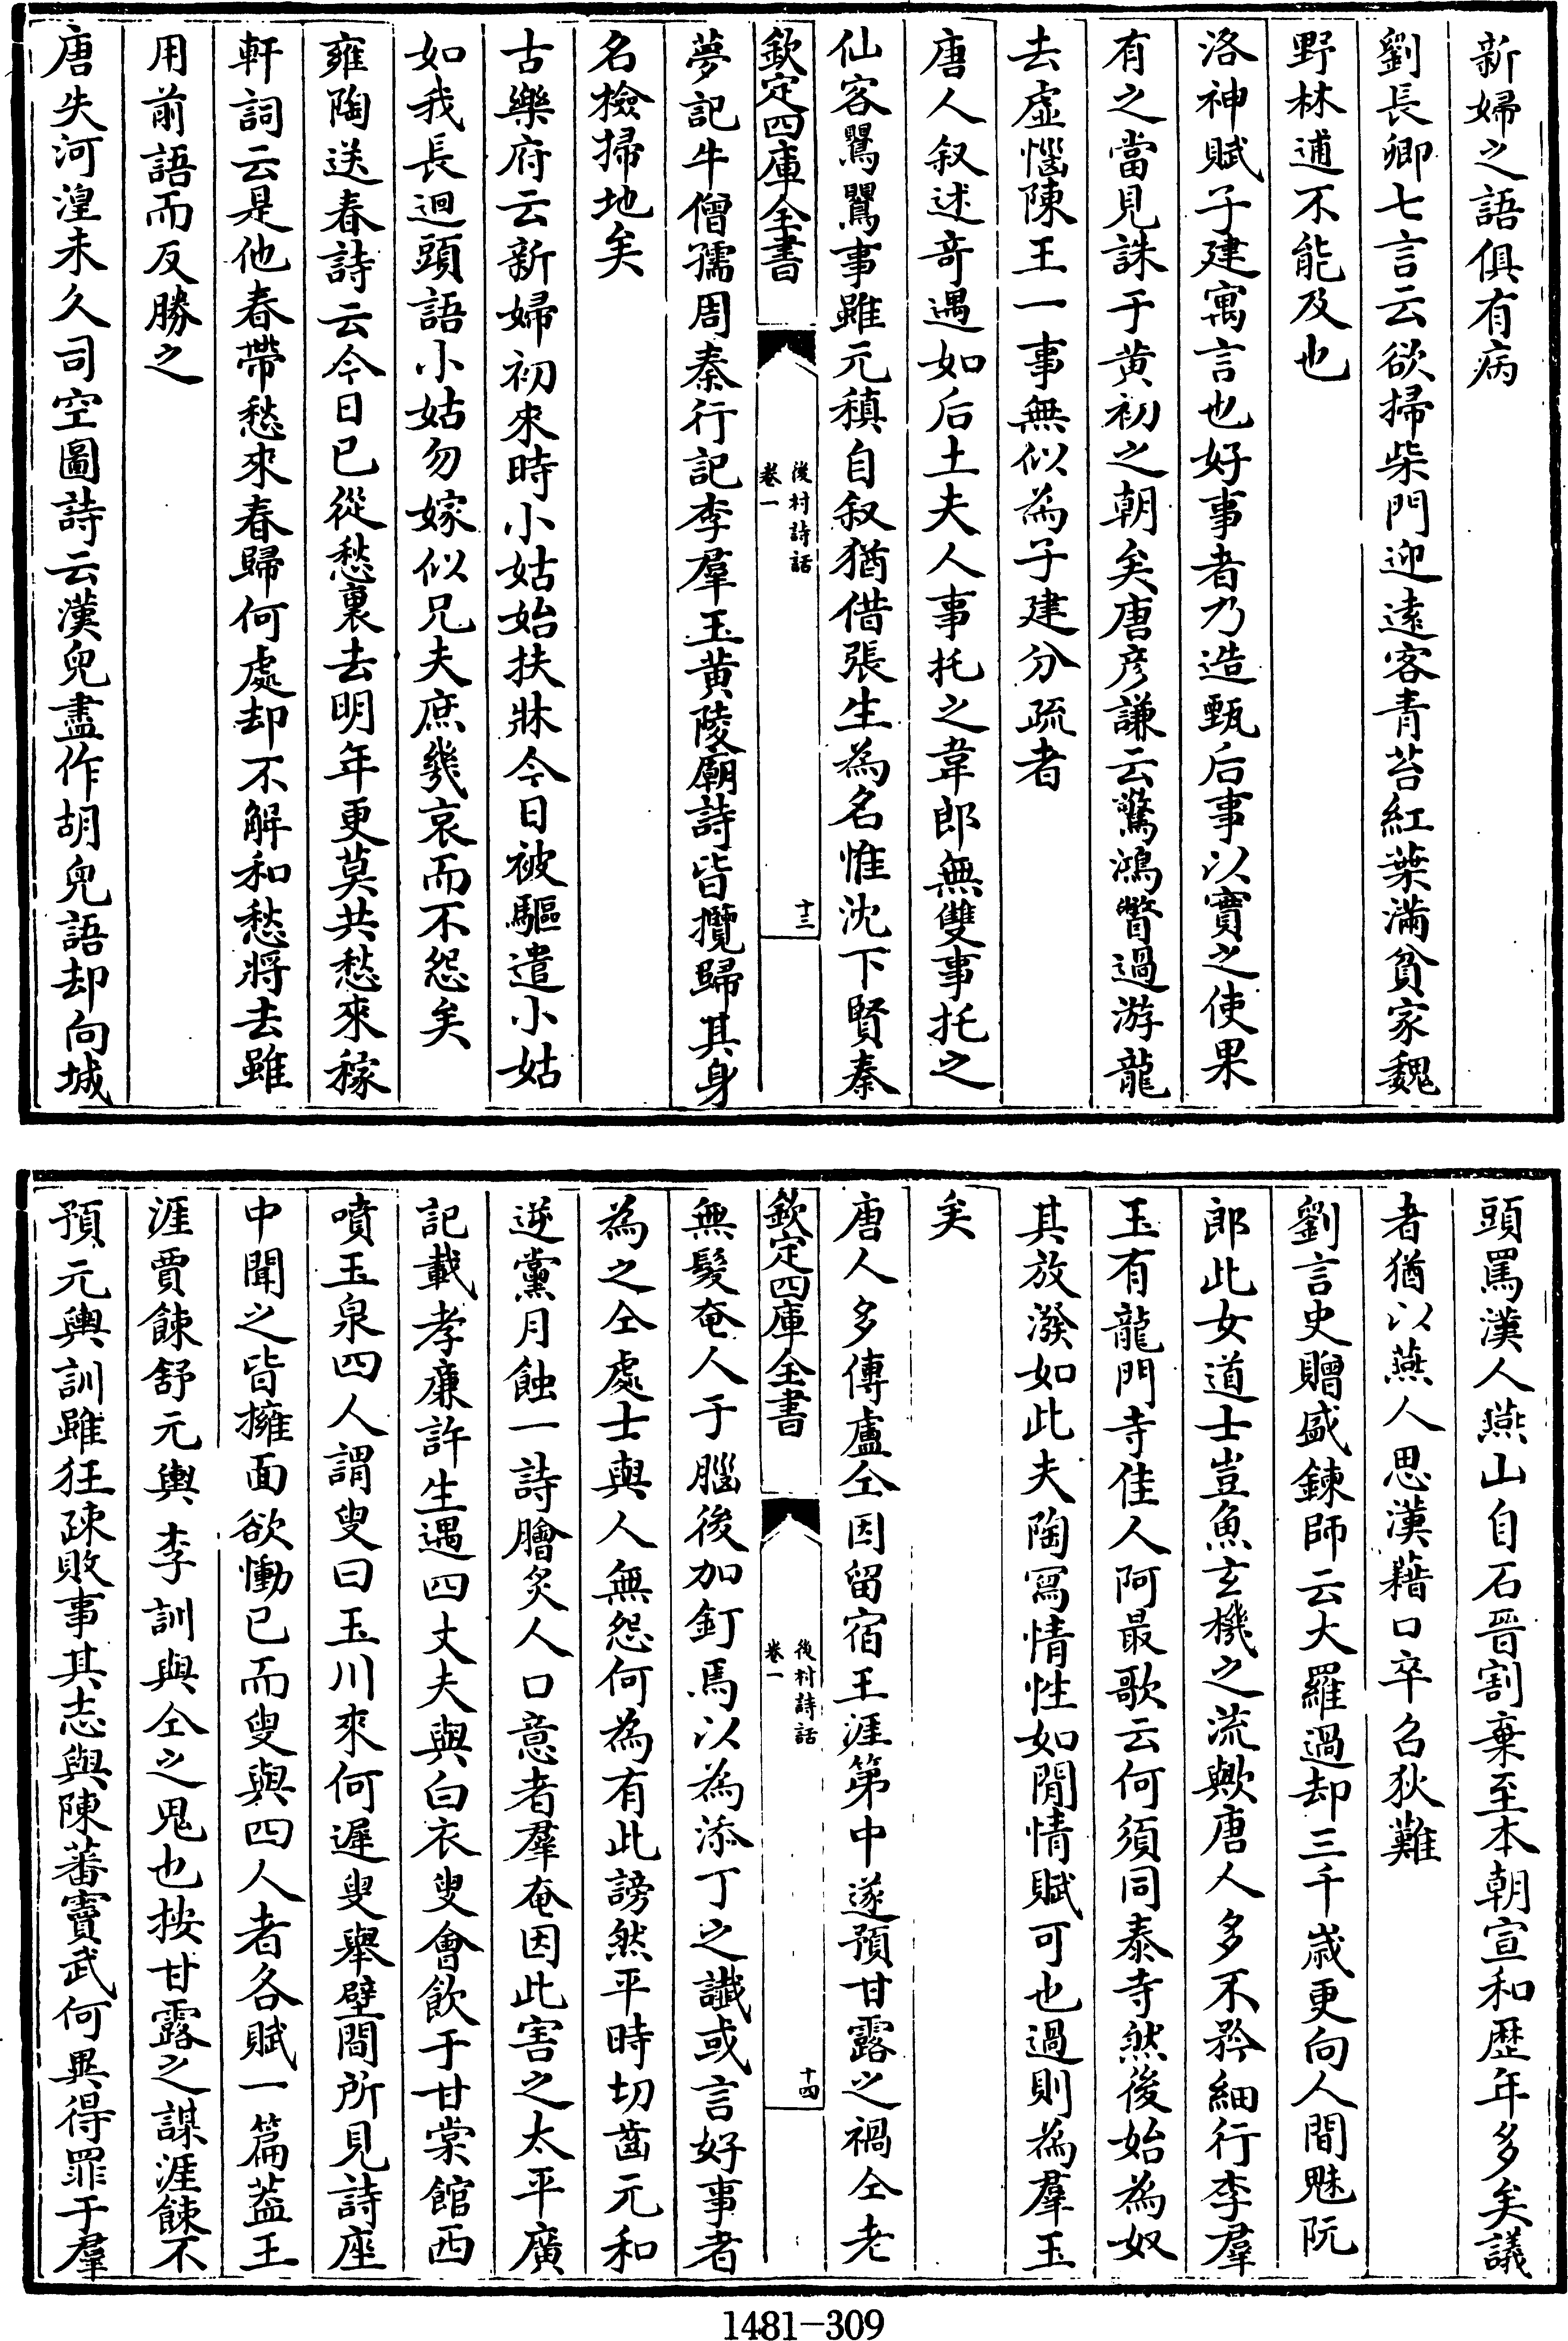 新婦之語俱有病
劉長卿七言云欲掃柴門迎遠客青苔紅葉滿貧家魏
野林逋不能及也
洛神賦子建寓言也好事者乃造甄后事以實之使果
有之當見誅于黄初之朝矣唐彦謙云驚鴻瞥過游龍
去虛惱陳王一事無似為子建分疏者
唐人叙述奇遇如后土夫人事托之韋郎無雙事托之
仙客鸎鸎事雖元稹自叙猶借張生為名惟沈下賢秦
欽定四庫全書
後村詩話
卷一
十三
夢記牛僧孺周秦行記李羣玉黄陵廟詩皆攬歸其身
名檢掃地矣
古樂府云新婦初來時小姑始扶牀今日被驅遣小姑
如我長迴頭語小姑勿嫁似兄夫庶幾哀而不怨矣
雍陶送春詩云今日已從愁裏去明年更莫共愁來稼
軒詞云是他春帶愁來春歸何處却不解和愁將去雖
用前語而反勝之
唐失河湟未久司空圖詩云漢兒盡作胡兒語却向城
頭罵漢人燕山自石晉割棄至本朝宣和歴年多矣議
者猶以燕人思漢藉口卒召狄難
劉言史贈盛鍊師云大羅過却三千歳更向人間魅阮
郎此女道士豈魚玄機之流歟唐人多不矜細行李羣
玉有龍門寺佳人阿最歌云何須同泰寺然後始為奴
其放潑如此夫陶冩情性如閒情賦可也過則為羣玉
矣
唐人多傳盧仝因留宿王涯第中遂預甘露之禍仝老
欽定四庫全書
後村詩話
卷一
十四
無髮奄人于腦後加釘焉以為添丁之讖或言好事者
為之仝處士與人無怨何為有此謗然平時切齒元和
逆黨月蝕一詩膾炙人口意者羣奄因此害之太平廣
記載孝廉許生遇四丈夫與白衣叟會飲于甘棠館西
噴玉泉四人謂叟曰玉川來何遲叟舉壁間所見詩座
中聞之皆擁面欲慟已而叟與四人者各賦一篇葢王
涯賈餗舒元輿李訓與仝之鬼也按甘露之謀涯餗不
預元輿訓雖狂疎敗事其志與陳蕃竇武何異得罪于羣
1481-309